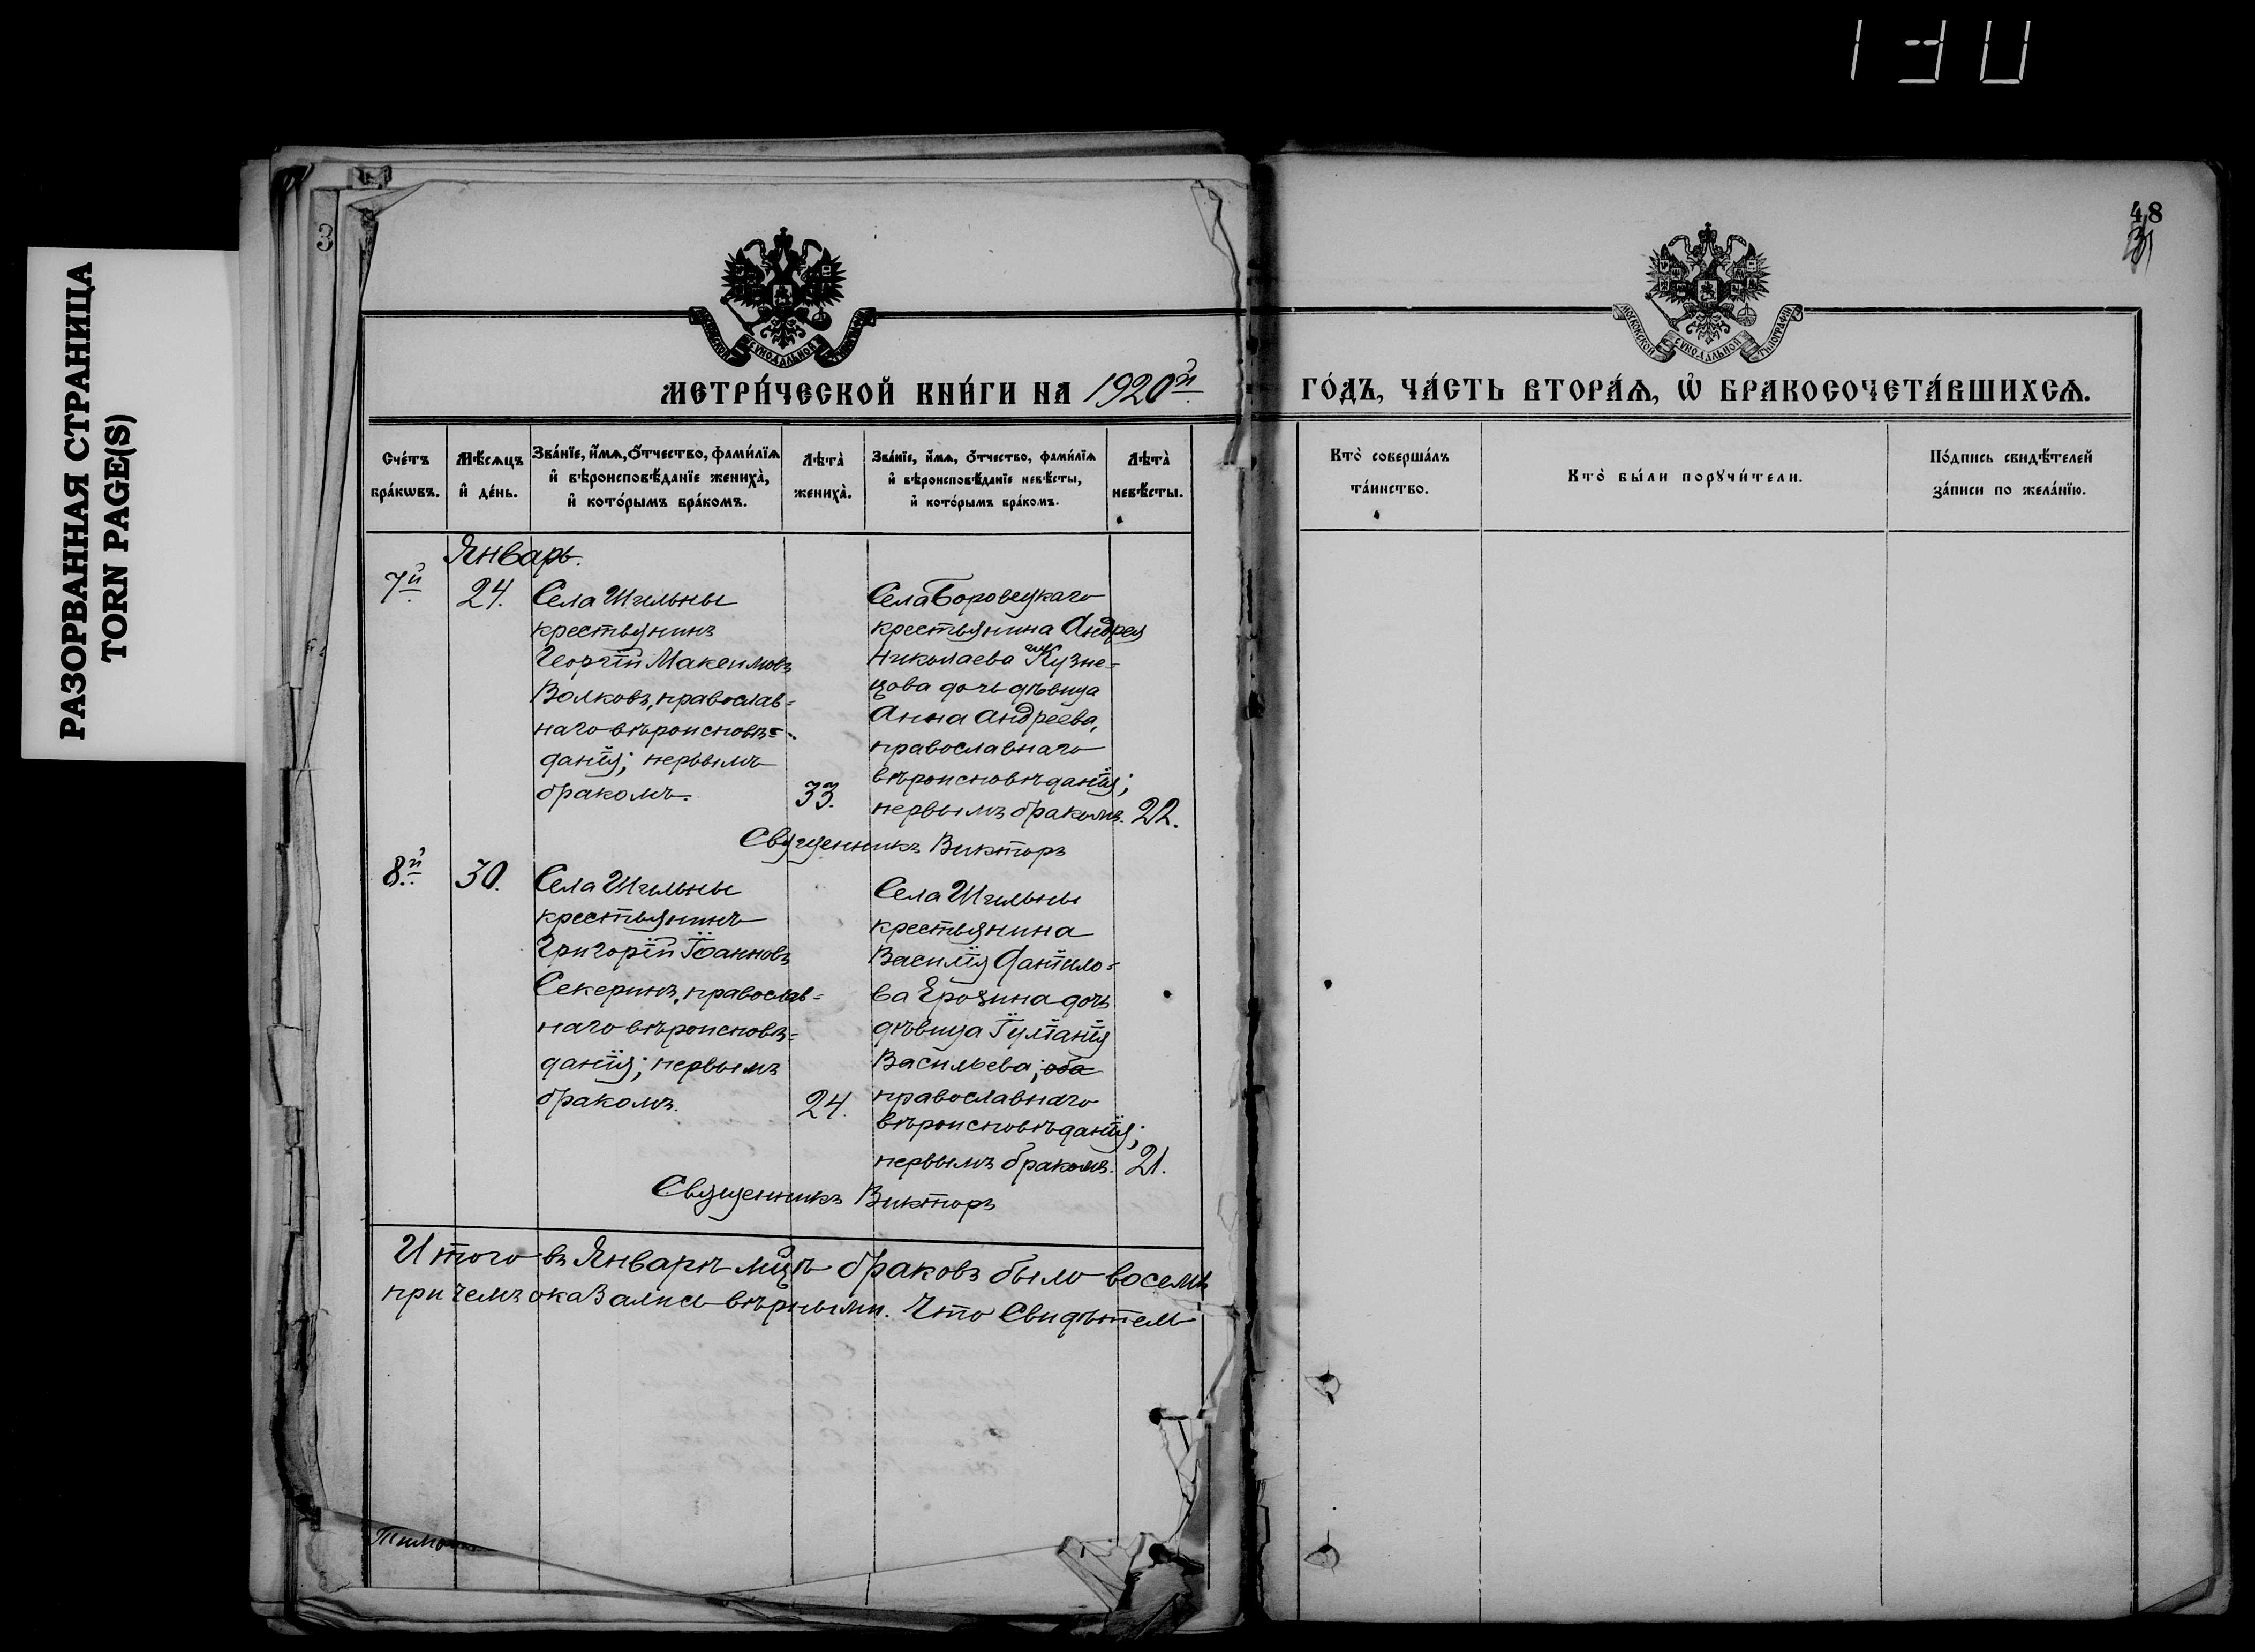 130
РАЗОРВАННАЯ СТРАНИЦА
TORN PAGE(S)
3
48
МОСКОВСКОЙ СѴНОДАЛЬНОЙ ТИПОГРАФІИ
МОСКОВСКОЙ СѴНОДАЛЬНОЙ ТИПОГРАФІИ
МЕТРИ́ЧЕСКОЙ КНИ́ГИ НА 1920й
ГО́ДЪ, ЧА́СТЬ ВТОРА́Ѧ, Ѡ҆ БРАКОСОЧЕТА́ВШИХСѦ.
Сче́тъ бра́кѡвъ.
Мѣ́сѧцъ и҆ де́нь.
Зва́нїе, и҆́мѧ, ѻ҆́тчество, фами́лїѧ
и҆ вѣроисповѣ́данїе жениха̀,
и҆ кото́рымъ бра́комъ.
Лѣта̀ жениха̀.
Зва́нїе, и҆́мѧ, ѻ҆́тчество, фами́лїѧ
и҆ вѣроисповѣ́данїе невѣ́сты,
и҆ кото́рымъ бра́комъ.
Лѣта̀ невѣ́сты.
Кто̀ соверша́лъ
та́инство.
Кто̀ бы́ли порꙋчи́тели.
По́дпись свидѣ́телей
за́писи по жела́нїю.
Январь.
7й
24.
Села Шильны
крестьянинъ
Георгій Максимовъ
Волковъ, православ=
наго вѣроисповѣ=
данія; первымъ
бракомъ.
33.
Села Боровецкаго
крестьянина Андрея
Николаева Кузне=
цова дочь дѣвица
Анна Андреева,
православнаго
вѣроисповѣданія;
первымъ бракомъ.
22.
Священникъ Викторъ
8й
30.
Села Шильны
крестьянинъ
Григорій Іоанновъ
Секеринъ, православ=
наго вѣроисповѣ=
данія; первымъ
бракомъ.
24.
Села Шильны
крестьянина
Василія Данило=
ва Ерозина дочь
дѣвица Іуліанія
Васильева; оба
православнаго
вѣроисповѣданія;
первымъ бракомъ.
21.
Священникъ Викторъ
Итого въ Январѣ мцѣ браковъ было восемь
при чемъ оказались вѣрными. Что Свидѣтель